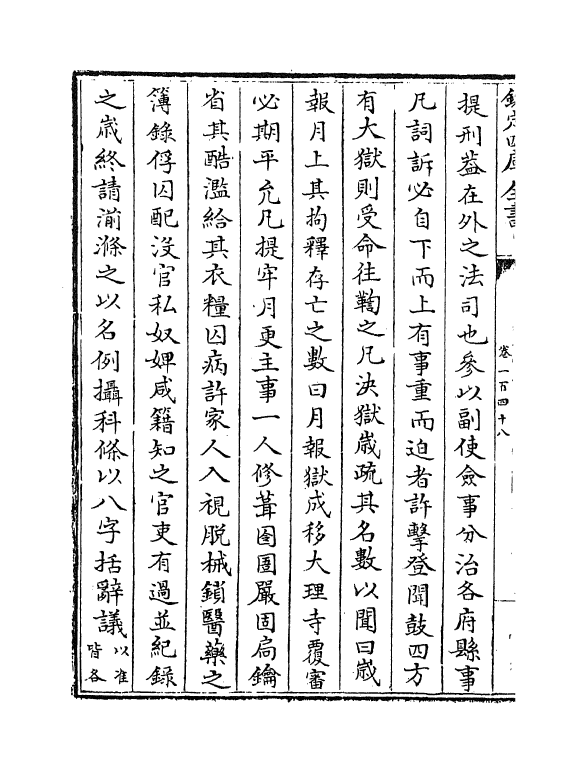 欽定四庫全書
卷一百四十八
提刑葢在外之法司也參以副使僉事分治各府縣事
凡詞訴必自下而上有事重而迫者許擊登聞鼓四方
有大獄則受命往鞫之凡決獄歲疏其名數以聞曰歲
報月上其拘釋存亡之數曰月報獄成移大理寺覆審
必期平允凡提牢月更主事一人修葺囹圄嚴固扃鑰
省其酷濫給其衣糧囚病許家人入視脫械鎖醫藥之
簿錄俘囚配沒官私奴婢咸籍知之官吏有過並紀錄
之歲終請湔滌之以名例攝科條以八字括辭議以准
皆各